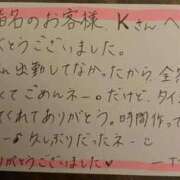 指名のお客様、Kさんへ
とうございました。
出勤してなかったから、全然
くてごめんネー。だけど、タイ
てくれてありがとう。時間作って
久しぶりだったネーこ
りがとうございました♥